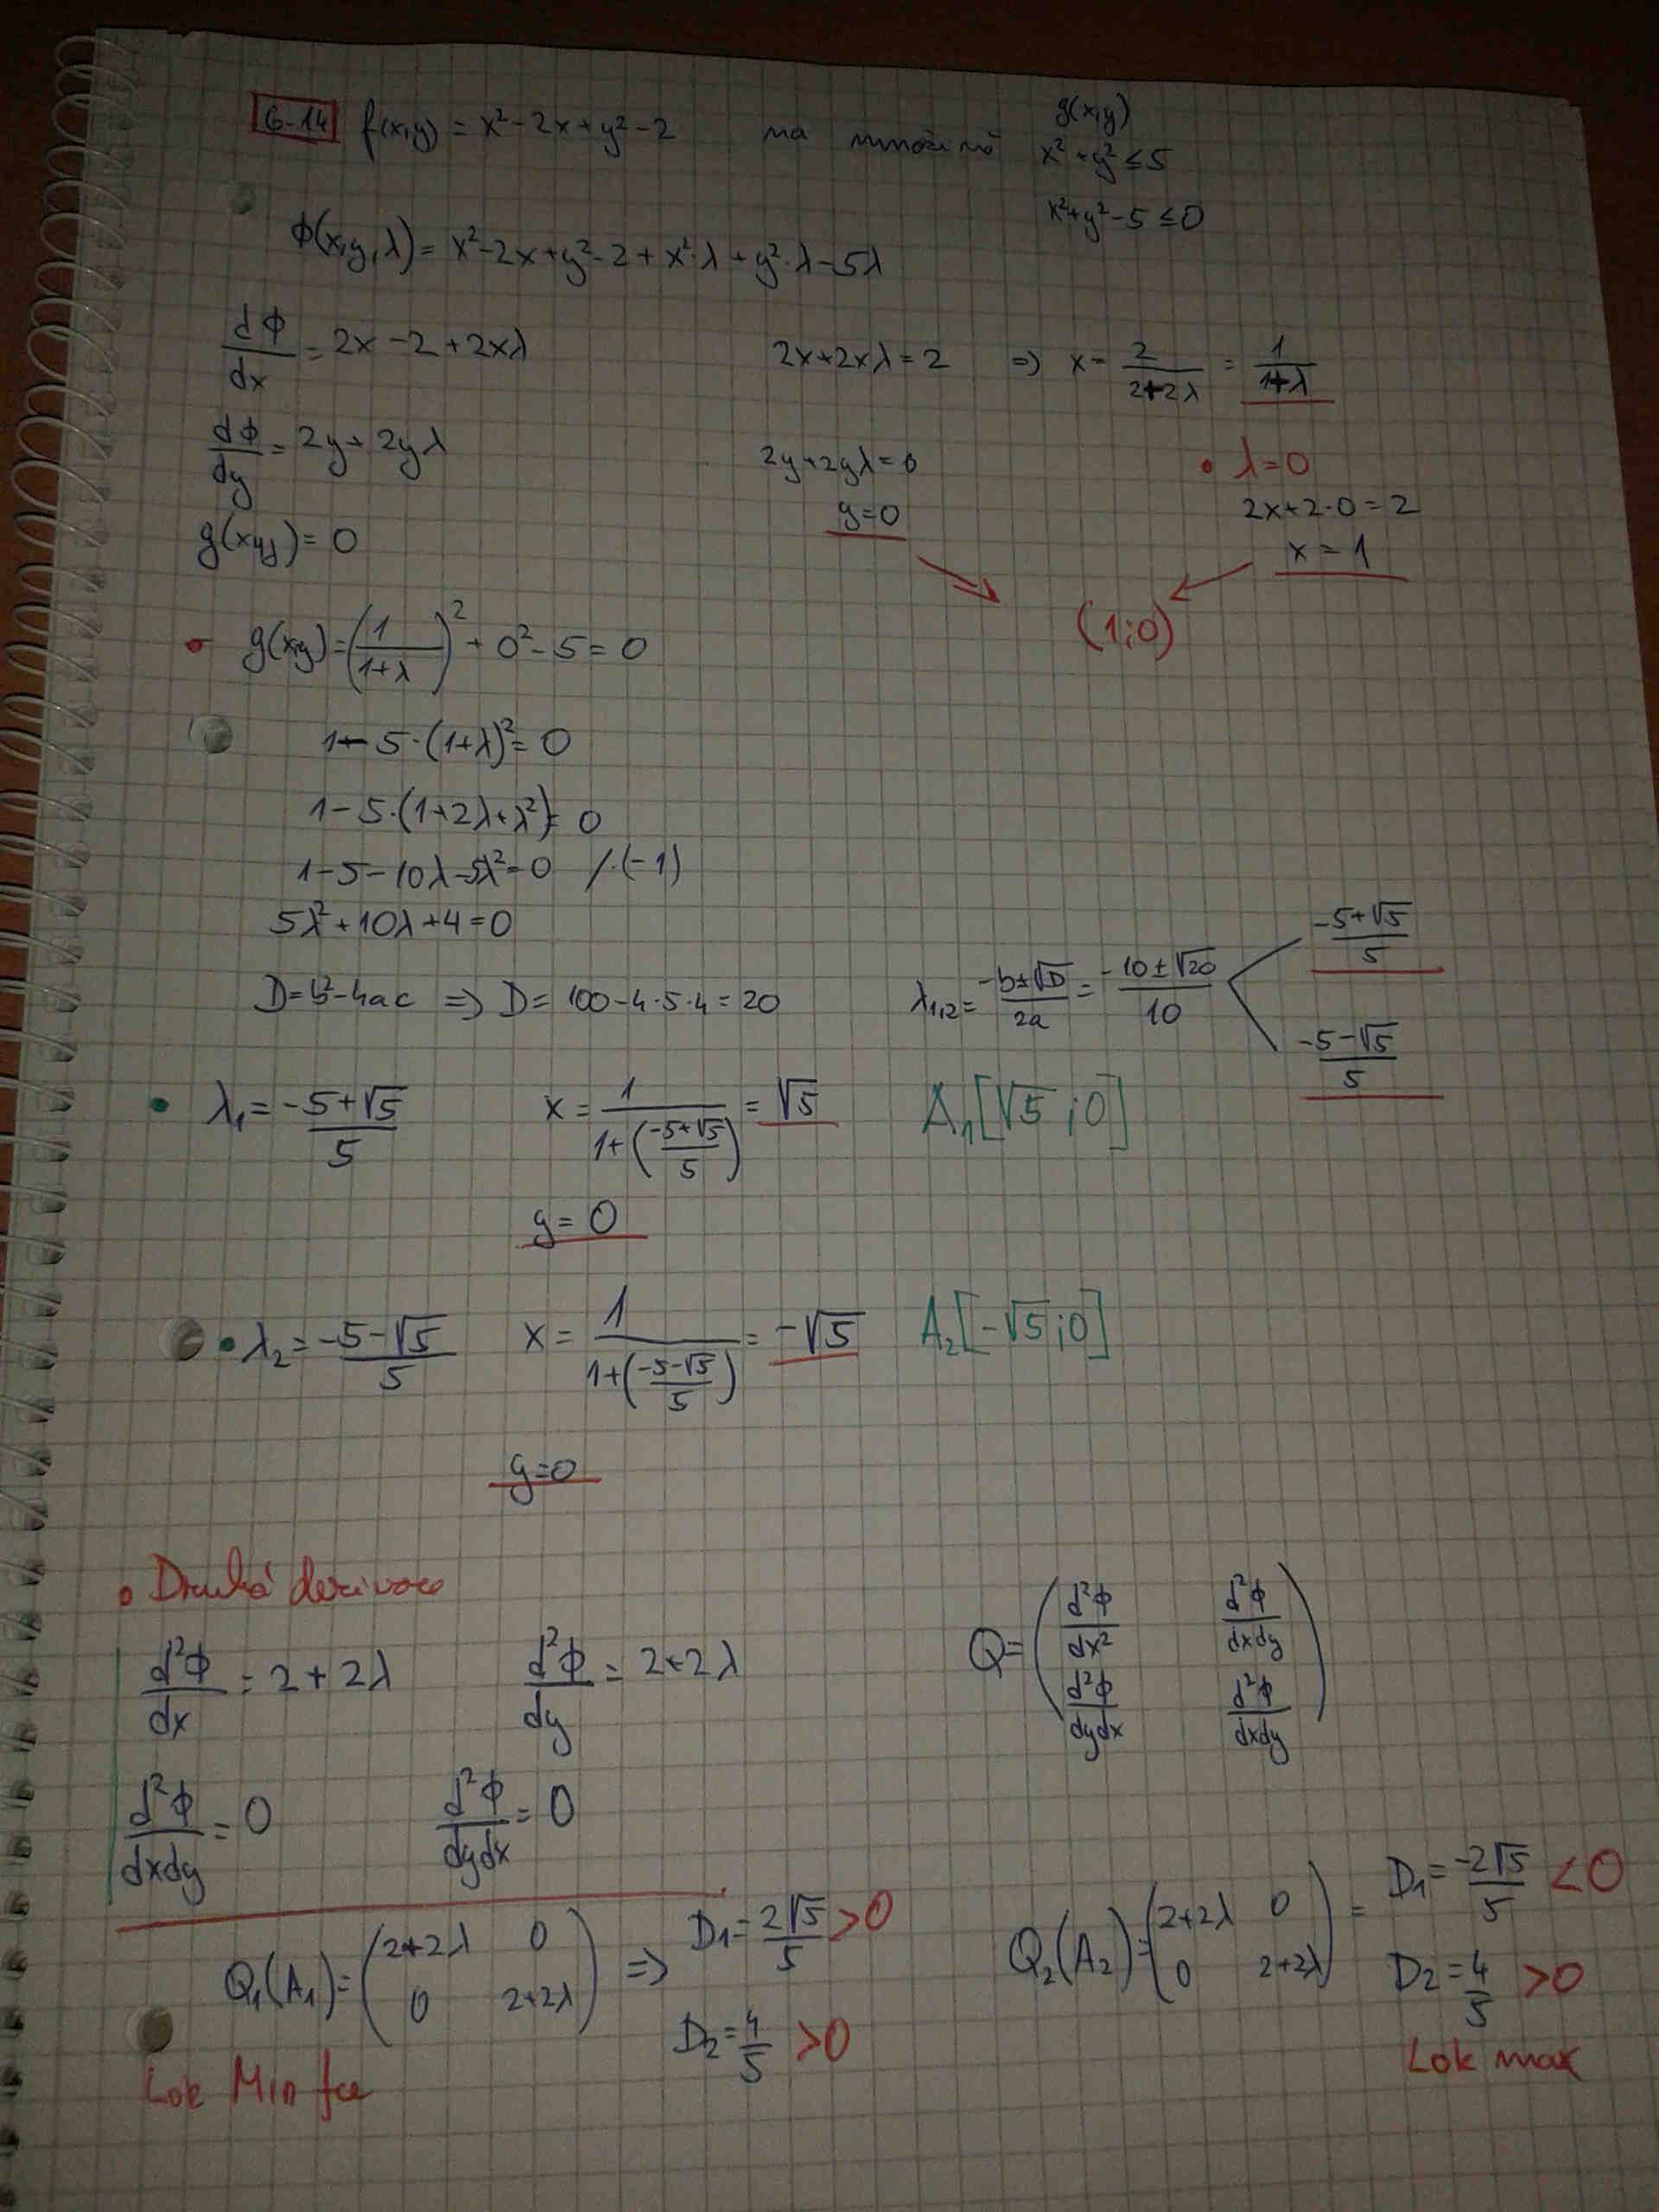 6-14 f(x,y) = x² - 2x + y² - 2 na množině g(x,y)
x² + y² ≤ 5
x² + y² - 5 ≤ 0
φ(x,y,λ) = x² - 2x + y² - 2 + x²·λ + y²·λ - 5λ
dφ/dx = 2x - 2 + 2xλ 2x + 2xλ = 2 ⇒ x = 2/(2+2λ) = 1/(1+λ)
dφ/dy = 2y + 2yλ 2y + 2yλ = 0 • λ = 0
y = 0 2x + 2·0 = 2
g(x,y) = 0 x = 1
(1;0)
g(x,y) = (1/(1+λ))² + 0² - 5 = 0
1 - 5·(1+λ)² = 0
1 - 5·(1+2λ+λ²) = 0
1 - 5 - 10λ - 5λ² = 0 /·(-1)
5λ² + 10λ + 4 = 0
D = b² - 4ac ⇒ D = 100 - 4·5·4 = 20 λ₁,₂ = (-b±√D)/2a = (-10±√20)/10
(-5+√5)/5
(-5-√5)/5
• λ₁ = (-5+√5)/5 x = 1/(1+((-5+√5)/5)) = √5 A₁[√5;0]
y = 0
• λ₂ = (-5-√5)/5 x = 1/(1+((-5-√5)/5)) = -√5 A₂[-√5;0]
y = 0
• Druhá derivace
d²φ/dx = 2 + 2λ d²φ/dy = 2 + 2λ Q = (d²φ/dx² d²φ/dxdy
d²φ/dydx d²φ/dxdy)
d²φ/dxdy = 0 d²φ/dydx = 0
Q₁(A₁) = (2+2λ 0
0 2+2λ) ⇒ D₁ = 2√5/5 > 0
D₂ = 4/5 > 0
Lok Min fce
Q₂(A₂) = (2+2λ 0
0 2+2λ) = D₁ = -2√5/5 < 0
D₂ = 4/5 > 0
Lok max